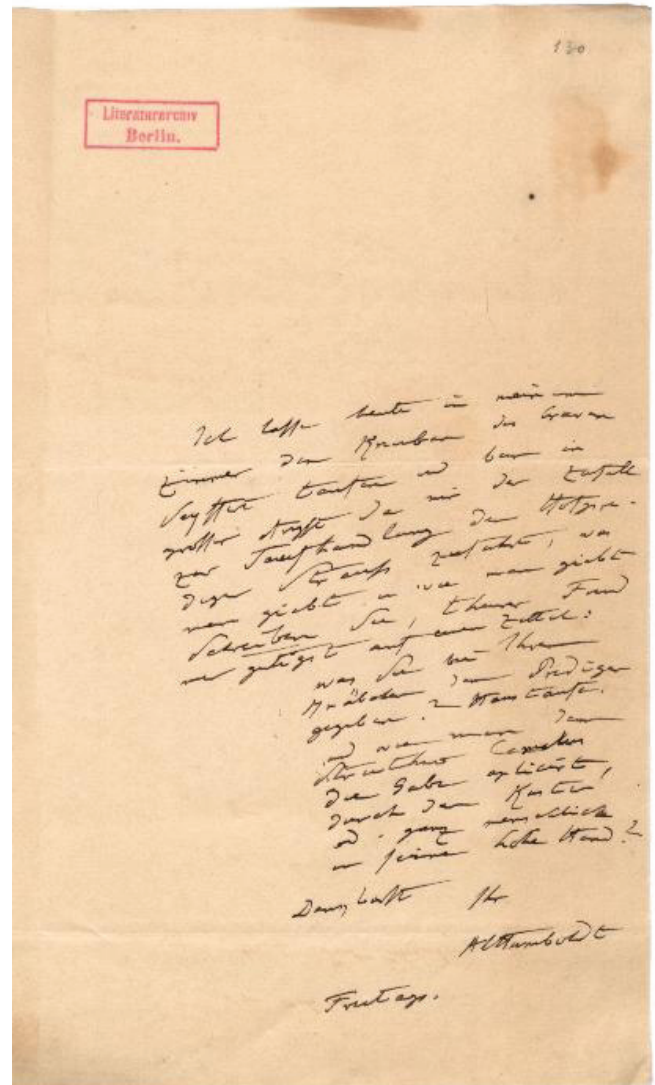 130
Literaturarchiv
Berlin.
Ich lasse heute in meinem
Zimmer den Knaben des braven
Seyffert taufen und bin in
großer Angst da mir der Zufall
zur Taufhandlung den Hofpre-
diger Strauß zuführt, was
man giebt u wie man giebt
Schreiben Sie, theurer Freund
mir gütigst auf einen Zettel:
was Sie bei Ihrem
dem Prediger
gegeben? Haustaufe.
und wie man dem
die Gabe applicirt,
durch den Küster,
od. ganz menschlich
in seine hohe Hand?
Dankbarst Ihr
AlHumboldt
Freitags.